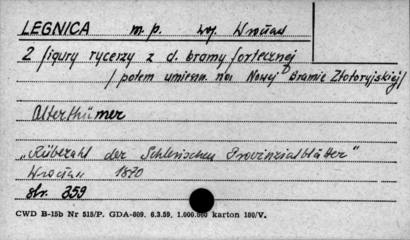 LEGNICA m. p. woj. Wrocław
2 figury rycerzy z d. bramy fortecznej
/ potem umieszn. na Nowej Bramie Złotoryjskiej/
Alterthümer
„Rübezahl der Schlesischen Provinzialblätter"
Wrocław 1870
str. 359
CWD B-15b Nr 515/P. GDA-609. 6.3.59. 1.000.000 karton 180/V.